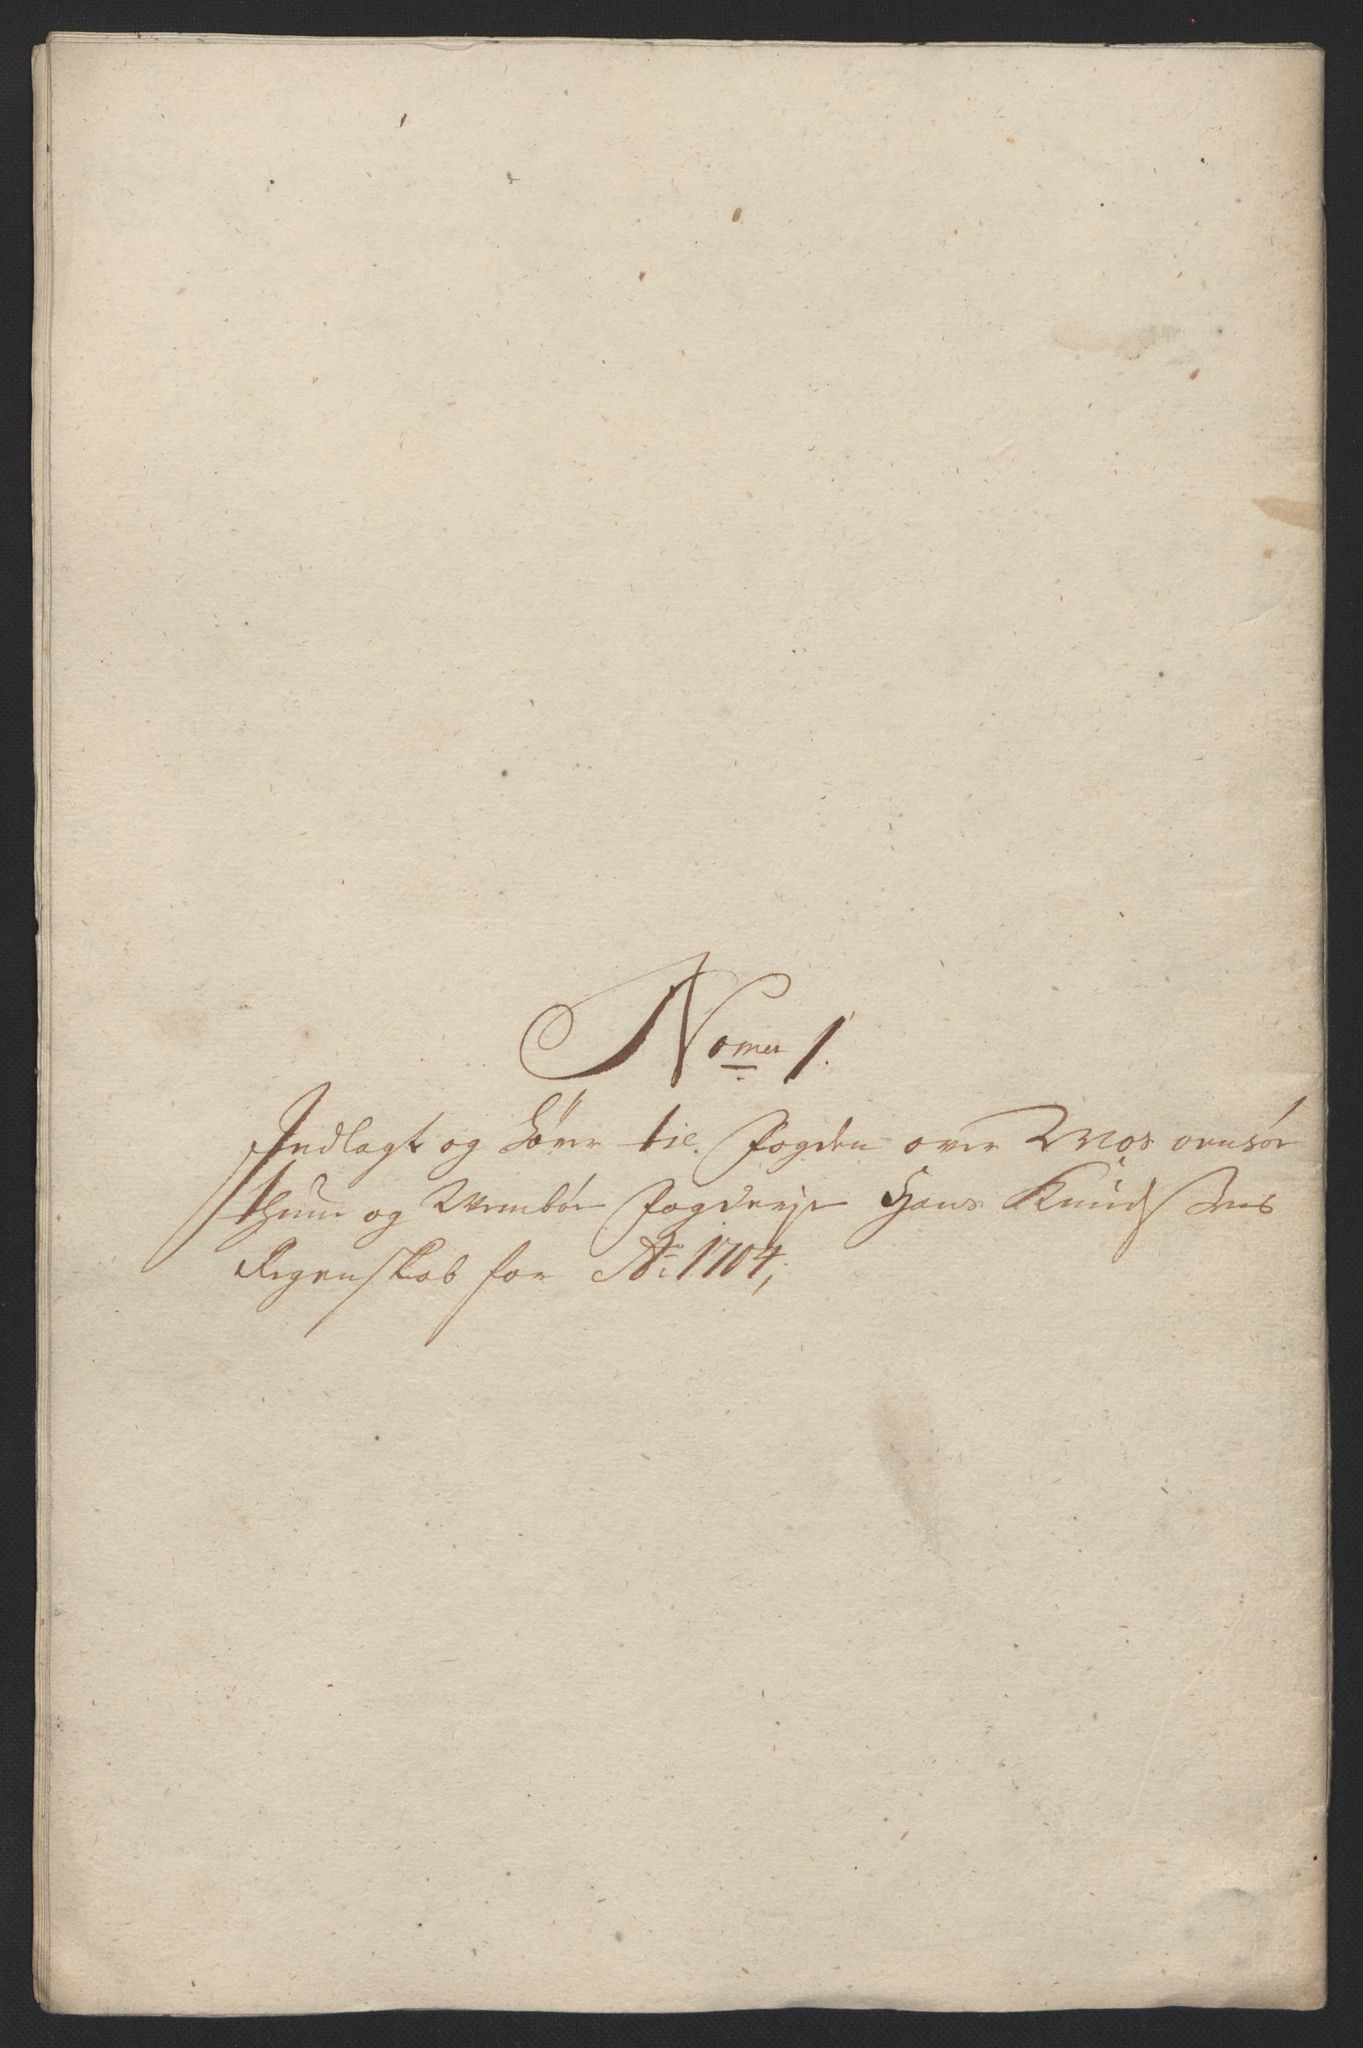 Nomer 1.
Indlagt og hörer til Fogden over Mos onsöe
thune og Wemböe Fogderje Hans Knudsens
Regenskab for Ao: 1704,